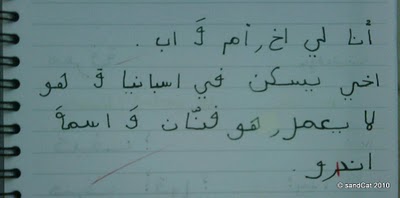 أنا لي اخ, أم وَ اب .
اخي يسكن في اسبانيا وَ هو
لا يعمل, هو فنّان وَ اسمهَ
اندرو.
© sandCat 2010